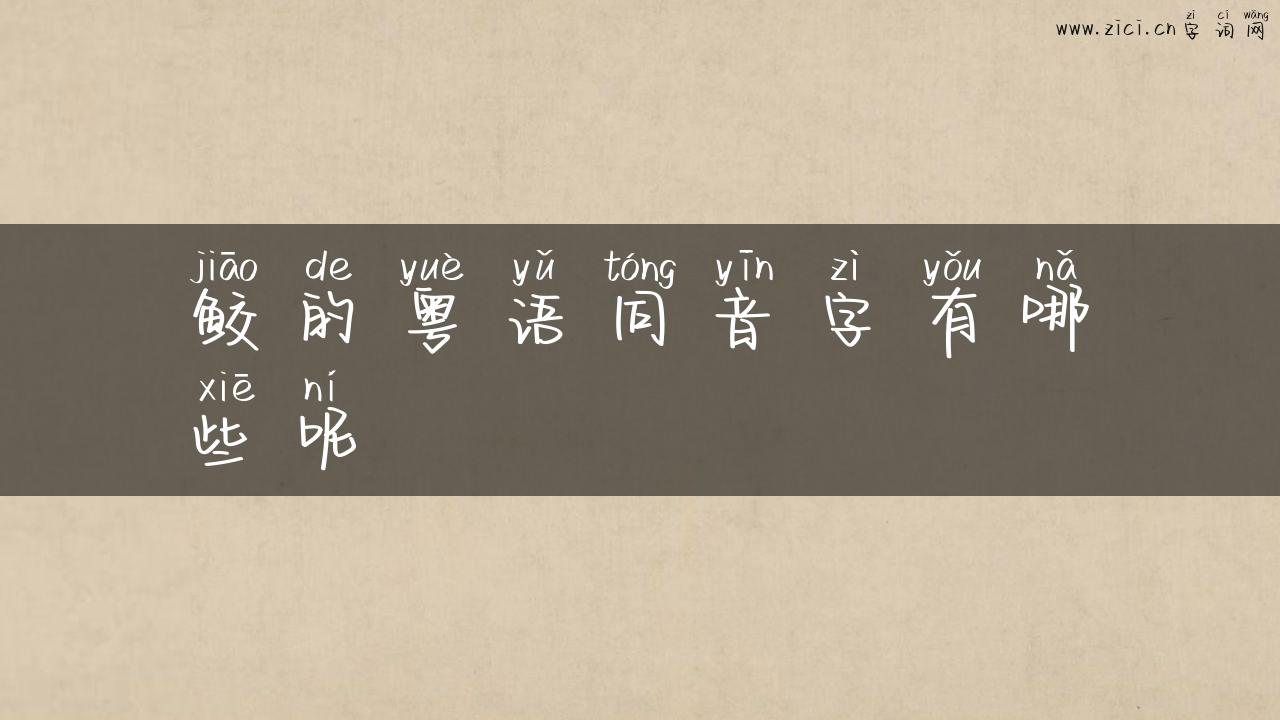 zì cí wǎng
www.zici.cn 字词网
jiāo de yuè yǔ tóng yīn zì yǒu nǎ
鲛的粤语同音字有哪
xiē ní
些呢